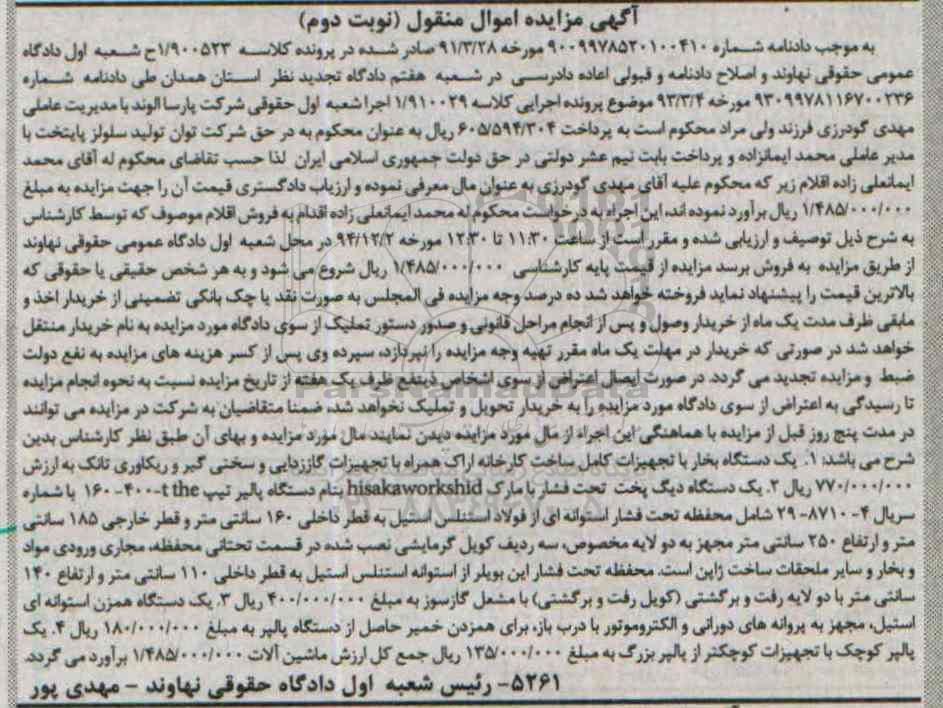 آگهی مزایده اموال منقول (نوبت دوم)
به موجب دادنامه شماره ۹۰۰۹۹۷۸۵۲۰۱۰۰۴۱۰ مورخه ۹۱/۳/۲۸ صادر شده در پرونده کلاسه ۱/۹۰۰۵۲۳ح شعبه اول دادگاه
عمومی حقوقی نهاوند و اصلاح دادنامه و قبولی اعاده دادرسی در شعبه هفتم دادگاه تجدید نظر استان همدان طی دادنامه شماره
۹۳۰۹۹۷۸۱۱۶۷۰۰۲۳۶ مورخه ۹۳/۳/۴ موضوع پرونده اجرایی کلاسه ۱/۹۱۰۰۲۹ اجرا شعبه اول حقوقی شرکت پارسا الوند با مدیریت عاملی
مهدی گودرزی فرزند ولی مراد محکوم است به پرداخت ۶۰۵/۵۹۴/۳۰۴ ریال به عنوان محکوم به در حق شرکت توان تولید سلولز پایتخت با
مدیر عاملی محمد ایمانزاده و پرداخت بابت نیم عشر دولتی در حق دولت جمهوری اسلامی ایران لذا حسب تقاضای محکوم له آقای محمد
ایمانعلی زاده اقلام زیر که محکوم علیه آقای مهدی گودرزی به عنوان مال معرفی نموده و ارزیاب دادگستری قیمت آن را جهت مزایده به مبلغ
۱/۴۸۵/۰۰۰/۰۰۰ ریال برآورد نموده اند، این اجراء به درخواست محکوم له محمد ایمانعلی زاده اقدام به فروش اقلام موصوف که توسط کارشناس
به شرح ذیل توصیف و ارزیابی شده و مقرر است از ساعت ۱۱:۳۰ تا ۱۲:۳۰ مورخه ۹۴/۱۲/۲ در محل شعبه اول دادگاه عمومی حقوقی نهاوند
از طریق مزایده به فروش برسد مزایده از قیمت پایه کارشناسی ۱/۴۸۵/۰۰۰/۰۰۰ ریال شروع می شود و به هر شخص حقیقی یا حقوقی که
بالاترین قیمت را پیشنهاد نماید فروخته خواهد شد ده درصد وجه مزایده فی المجلس به صورت نقد یا چک بانکی تضمینی از خریدار اخذ و
مابقی ظرف مدت یک ماه از خریدار وصول و پس از انجام مراحل قانونی و صدور دستور تملیک از سوی دادگاه مورد مزایده به نام خریدار منتقل
خواهد شد در صورتی که خریدار در مهلت یک ماه مقرر تهیه وجه مزایده را نپردازد، سپرده وی پس از کسر هزینه های مزایده به نفع دولت
ضبط و مزایده تجدید می گردد. در صورت ایصال اعتراض از سوی اشخاص ذینفع ظرف یک هفته از تاریخ مزایده نسبت به نحوه انجام مزایده
تا رسیدگی به اعتراض از سوی دادگاه مورد مزایده را به خریدار تحویل و تملیک نخواهد شد، ضمنا متقاضیان به شرکت در مزایده می توانند
در مدت پنج روز قبل از مزایده با هماهنگی این اجراء از مال مورد مزایده دیدن نمایند مال مورد مزایده و بهای آن طبق نظر کارشناس بدین
شرح می باشد: ۱. یک دستگاه بخار با تجهیزات کامل ساخت کارخانه اراک همراه با تجهیزات گاززدایی و سختی گیر و ریکاوری تانک به ارزش
۷۷۰/۰۰۰/۰۰۰ ریال ۲. یک دستگاه دیگ پخت تحت فشار با مارک hisakaworkshid بنام دستگاه پالپر تیپ t the-۴۰۰-۱۶۰ با شماره
سریال ۴-۸۷۱۰-۲۹ شامل محفظه تحت فشار استوانه ای از فولاد استنلس استیل به قطر داخلی ۱۶۰ سانتی متر و قطر خارجی ۱۸۵ سانتی
متر و ارتفاع ۲۵۰ سانتی متر مجهز به دو لایه مخصوص، سه ردیف کویل گرمایشی نصب شده در قسمت تحتانی محفظه، مجاری ورودی مواد
و بخار و سایر ملحقات ساخت ژاپن است. محفظه تحت فشار این بویلر از استوانه استنلس استیل به قطر داخلی ۱۱۰ سانتی متر و ارتفاع ۱۴۰
سانتی متر با دو لایه رفت و برگشتی (کویل رفت و برگشتی) با مشعل گازسوز به مبلغ ۴۰۰/۰۰۰/۰۰۰ ریال ۳. یک دستگاه همزن استوانه ای
استیل، مجهز به پروانه های دورانی و الکتروموتور با درب باز، برای همزدن خمیر حاصل از دستگاه پالپر به مبلغ ۱۸۰/۰۰۰/۰۰۰ ریال ۴. یک
پالپر کوچک با تجهیزات کوچکتر از پالپر بزرگ به مبلغ ۱۳۵/۰۰۰/۰۰۰ ریال جمع کل ارزش ماشین آلات ۱/۴۸۵/۰۰۰/۰۰۰ برآورد می گردد.
۵۲۶۱- رئیس شعبه اول دادگاه حقوقی نهاوند - مهدی پور
ParsNamadData